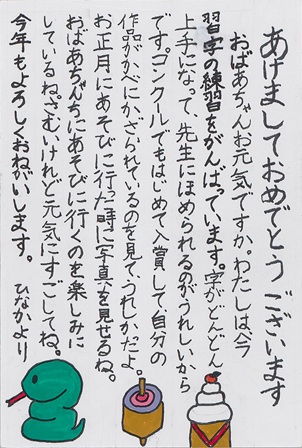 あけましておめでとうございます
おばあちゃんお元気ですか。わたしは今
習字の練習をがんばっています。字がどんどん
上手になって、先生にほめられるのがうれしいから
です。コンクールでもはじめて入賞して自分の
作品がかべにかざられているのを見て、うれしかたよ。
お正月にあそびに行った時に写真を見せるね。
おばあちゃんちにあそびに行くのを楽しみに
しているね。さむいけれど元気にすごしてね。
今年もよろしくおねがいします。 ひなかより